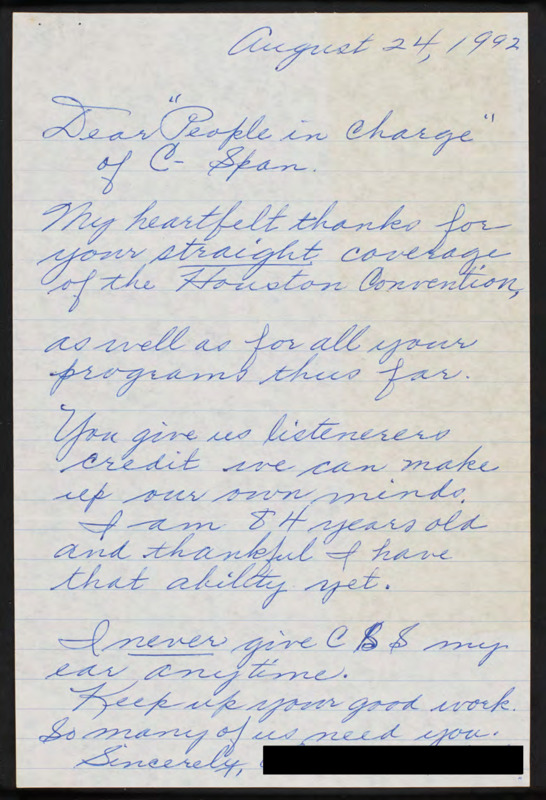 August 24, 1992
Dear "People in charge"
of C-Span.
My heartfelt thanks for
your straight coverage
of the Houston Convention,
as well as for all your
programs thus far.
You give us listenerers
credit we can make
up our own minds.
I am 84 years old
and thankful I have
that abilty yet.
I never give CBS my
ear anytime.
Keep up your good work.
So many of us need you.
Sincerely,